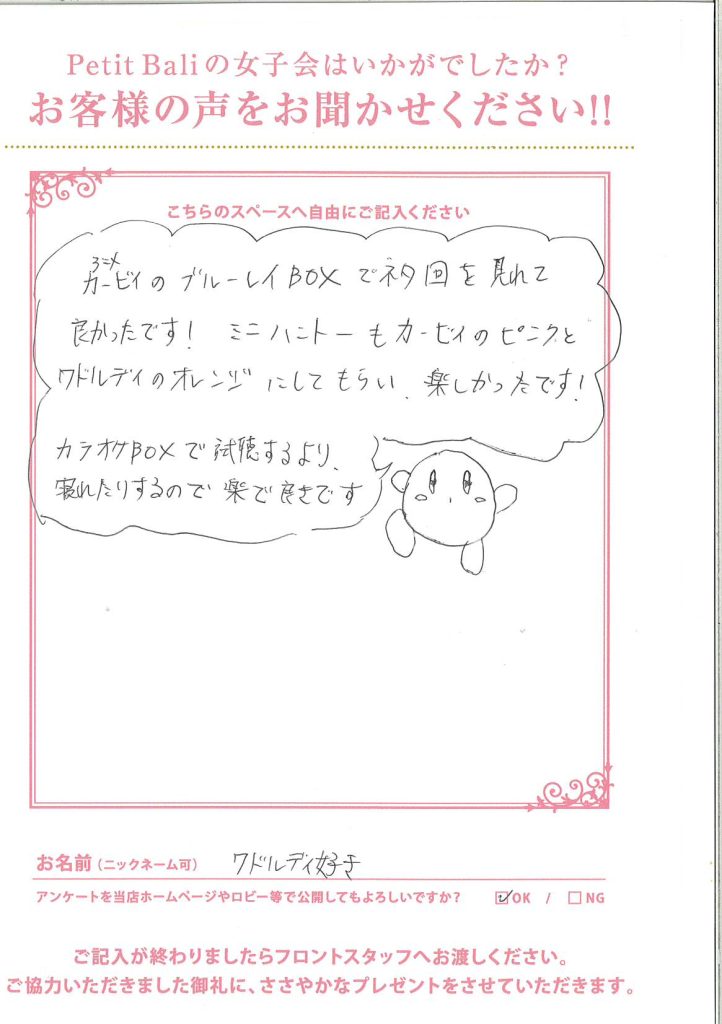 Petit Baliの女子会はいかがでしたか?
お客様の声をお聞かせください!!
こちらのスペースへ自由にご記入ください
アニメ
カービィの ブルーレイBOX でネタ回を見れて
良かったです! ミニハニトーもカービィのピンクと
ワドルディのオレンジ にしてもらい、楽しかったです!
カラオケBOXで試聴するより、
寝れたりするので 楽で良きです
お名前(ニックネーム可) ワドルディ好き
アンケートを当店ホームページやロビー等で公開してもよろしいですか? ☑OK / □NG
ご記入が終わりましたらフロントスタッフへお渡しください。
ご協力いただきました御礼に、ささやかなプレゼントをさせていただきます。